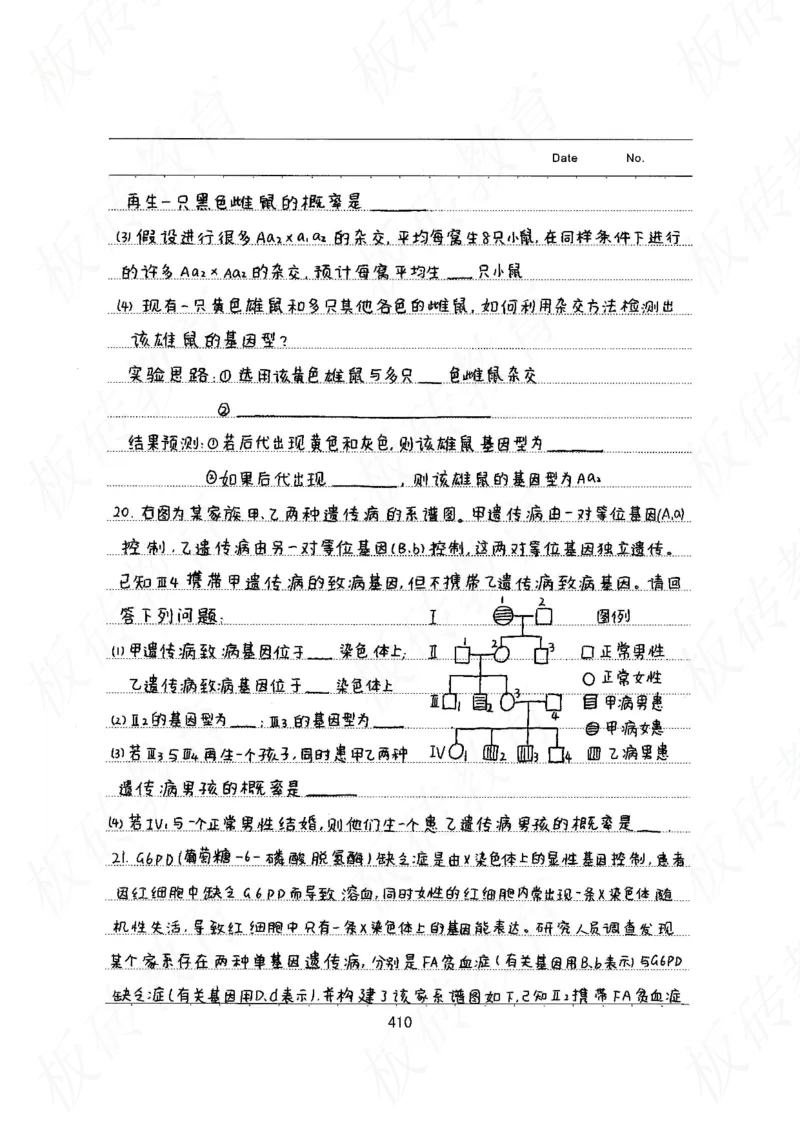 Date No.
再生一只黑色雌鼠的概率是______
(3)假设进行很多Aa₂×a₁a₂的杂交,平均每窝生8只小鼠,在同样条件下进行
的许多Aa₂×Aa₂的杂交,预计每窝平均生___只小鼠
(4)现有一只黄色雄鼠和多只其他各色的雌鼠,如何利用杂交方法检测出
该雄鼠的基因型?
实验思路:①选用该黄色雄鼠与多只___色雌鼠杂交
②______________________
结果预测:①若后代出现黄色和灰色,则该雄鼠基因型为______
②如果后代出现______,则该雄鼠的基因型为Aa₂
20.右图为某家族甲、乙两种遗传病的系谱图。甲遗传病由一对等位基因(A,a)
控制,乙遗传病由另一对等位基因(B.b)控制,这两对等位基因独立遗传。
已知Ⅲ4携带甲遗传病的致病基因,但不携带乙遗传病致病基因。请回
答下列问题:
(1)甲遗传病致病基因位于___染色体上;
乙遗传病致病基因位于___染色体上
(2)Ⅱ2的基因型为___;Ⅲ3的基因型为___
(3)若Ⅲ3与Ⅲ4再生一个孩子,同时患甲乙两种
遗传病男孩的概率是______
Ⅰ 1 2 图例
Ⅱ 1 2 3 正常男性
正常女性
Ⅲ 1 2 3 4 甲病男患
甲病女患
Ⅳ 1 2 3 4 乙病男患
(4)若Ⅳ1与一个正常男性结婚,则他们生一个患乙遗传病男孩的概率是___.
21.G6PD(葡萄糖-6-磷酸脱氢酶)缺乏症是由X染色体上的显性基因控制,患者
因红细胞中缺乏G6PD而导致溶血,同时女性的红细胞内常出现一条X染色体随
机性失活,导致红细胞中只有一条X染色体上的基因能表达。研究人员调查发现
某个家系存在两种单基因遗传病,分别是FA贫血症(有关基因用B.b表示)与G6PD
缺乏症(有关基因用D.d表示).并构建了该家系谱图如下,已知Ⅱ2携带FA贫血症
410
板砖教育